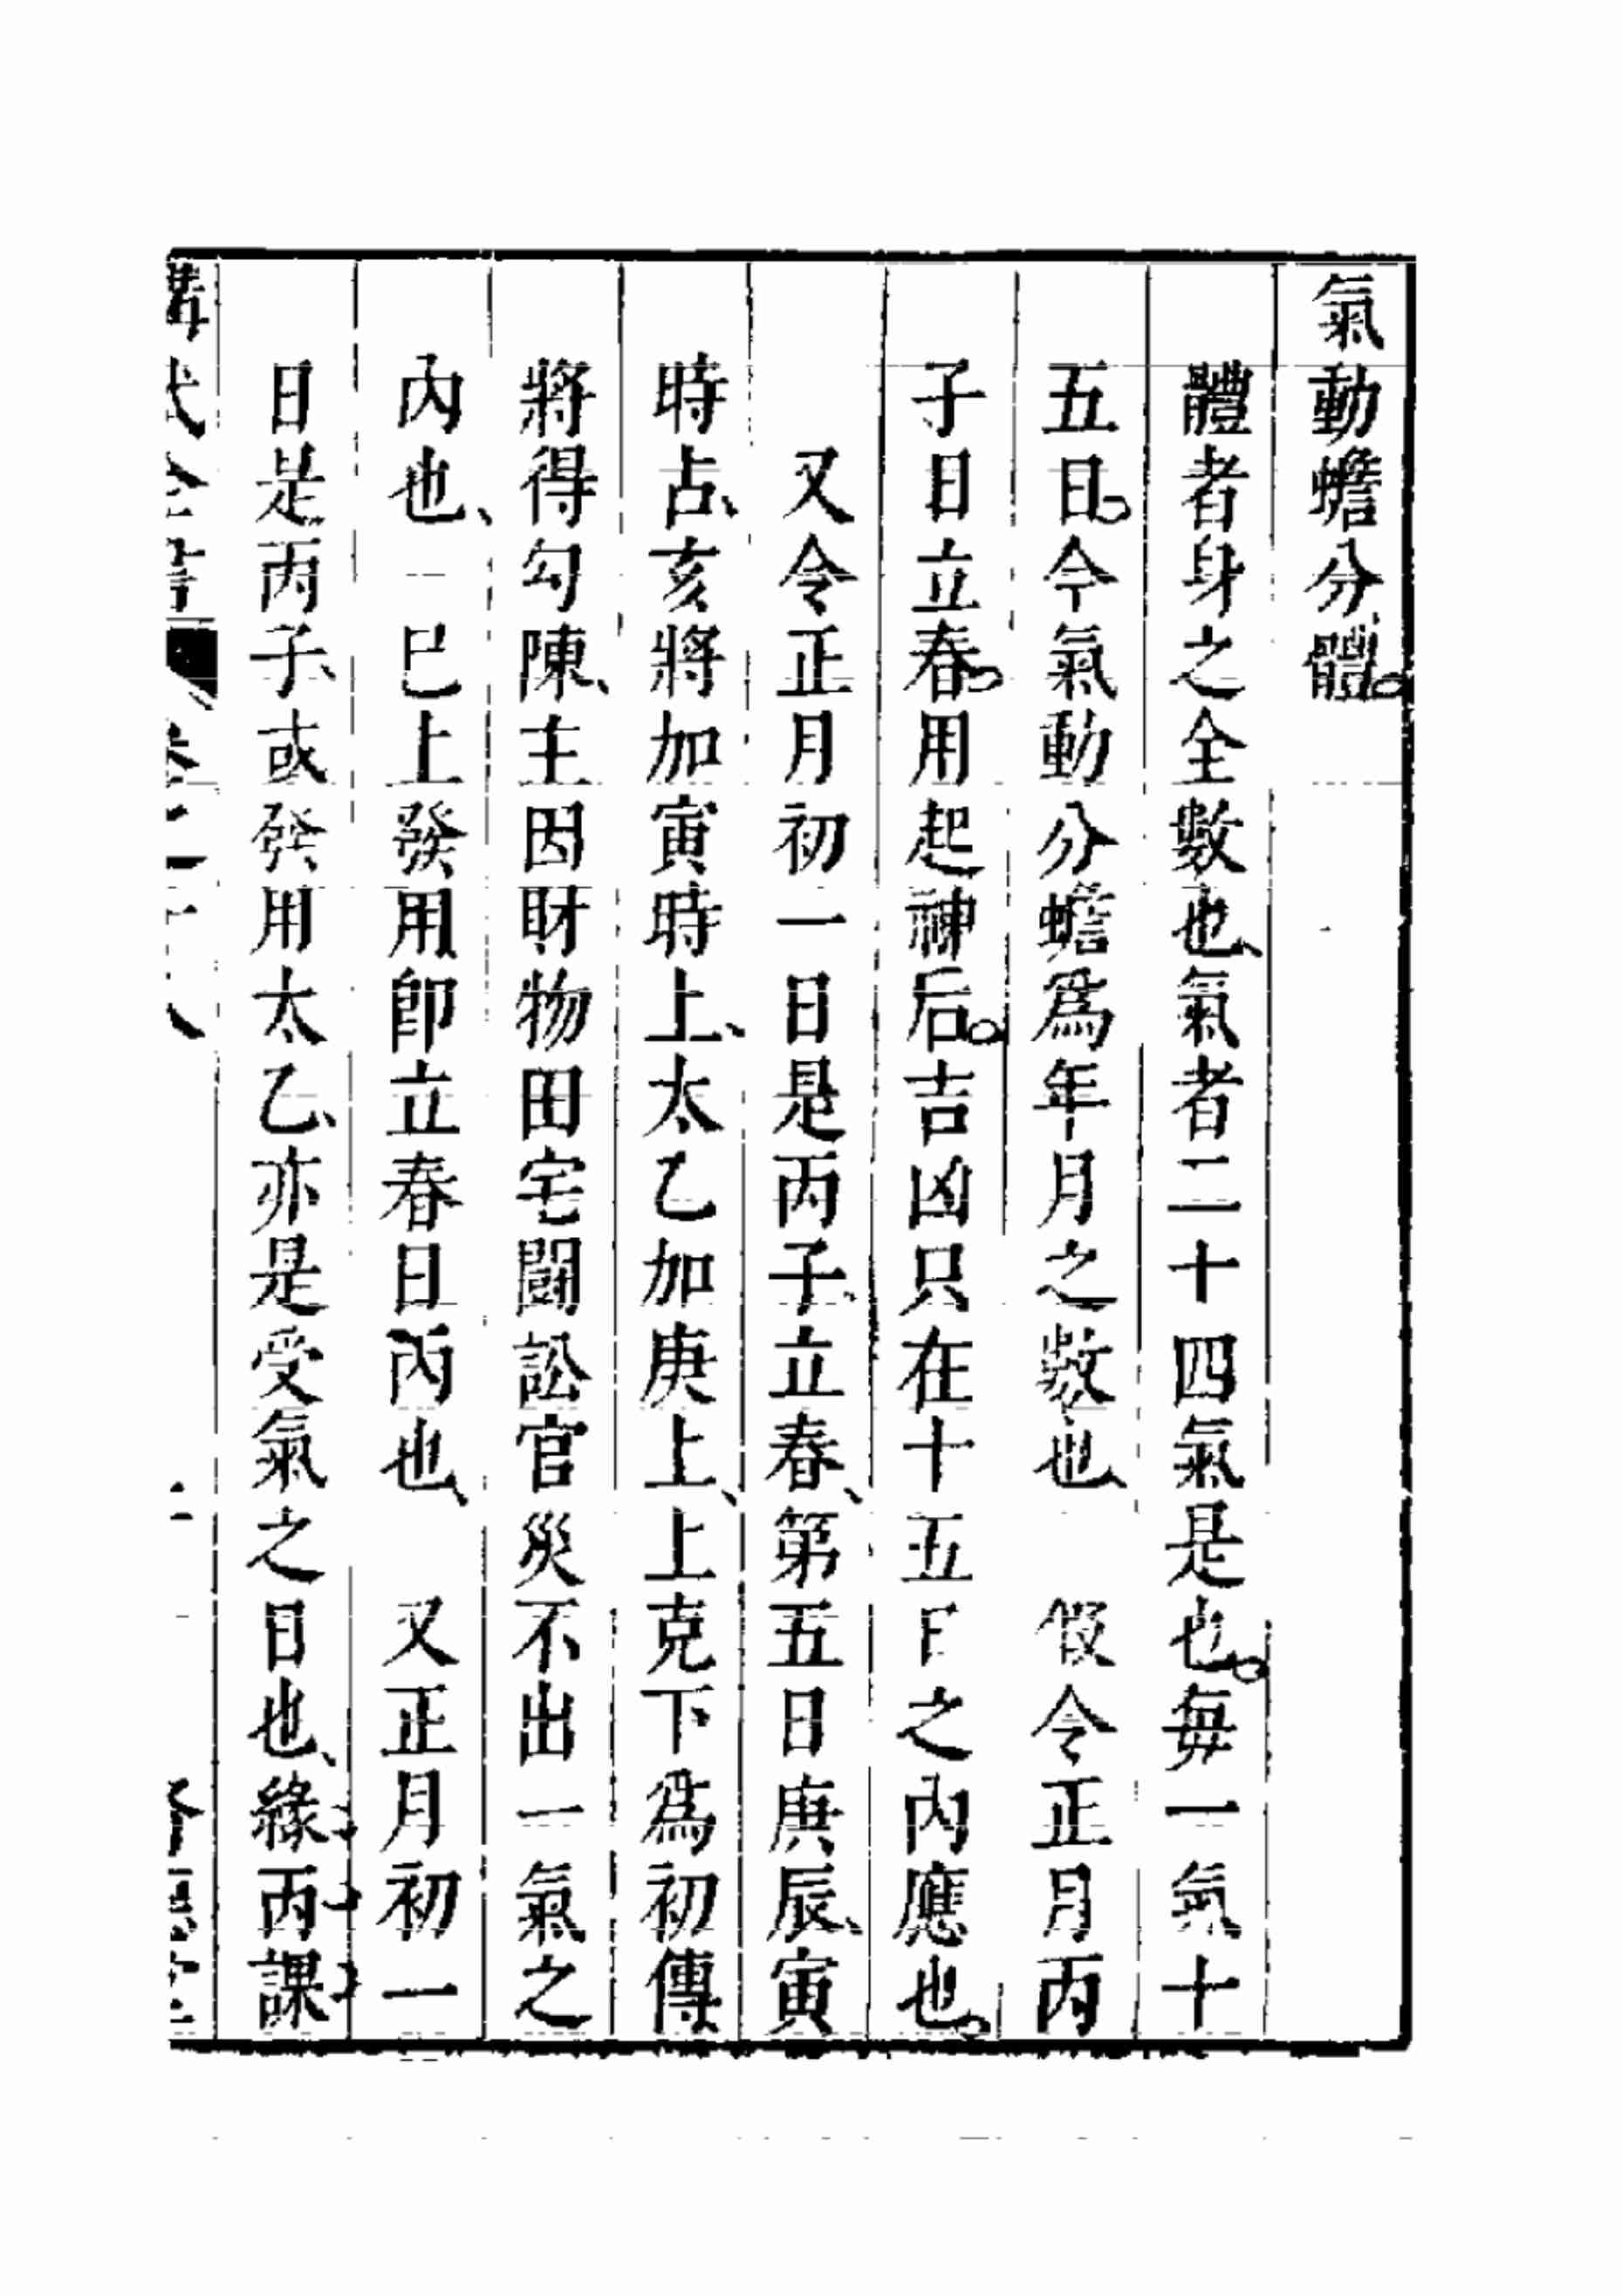 氣動蟾分體。
體者身之全數也、氣者二十四氣是也。每一氣十
五日。今氣動分蟾爲年月之數也、 假令正月丙
子日立春。用起神后。吉凶只在十五日之內應也。
又令正月初一日是丙子、立春、第五日庚辰、寅
時占、亥將加寅時上、太乙加庚上、上克下爲初傳
將得勾陳、主因財物田宅鬪訟官災不出一氣之
內也、 巳上發用卽立春日丙也、 又正月初一
日是丙子、或發用太乙、亦是受氣之日也、緣丙課